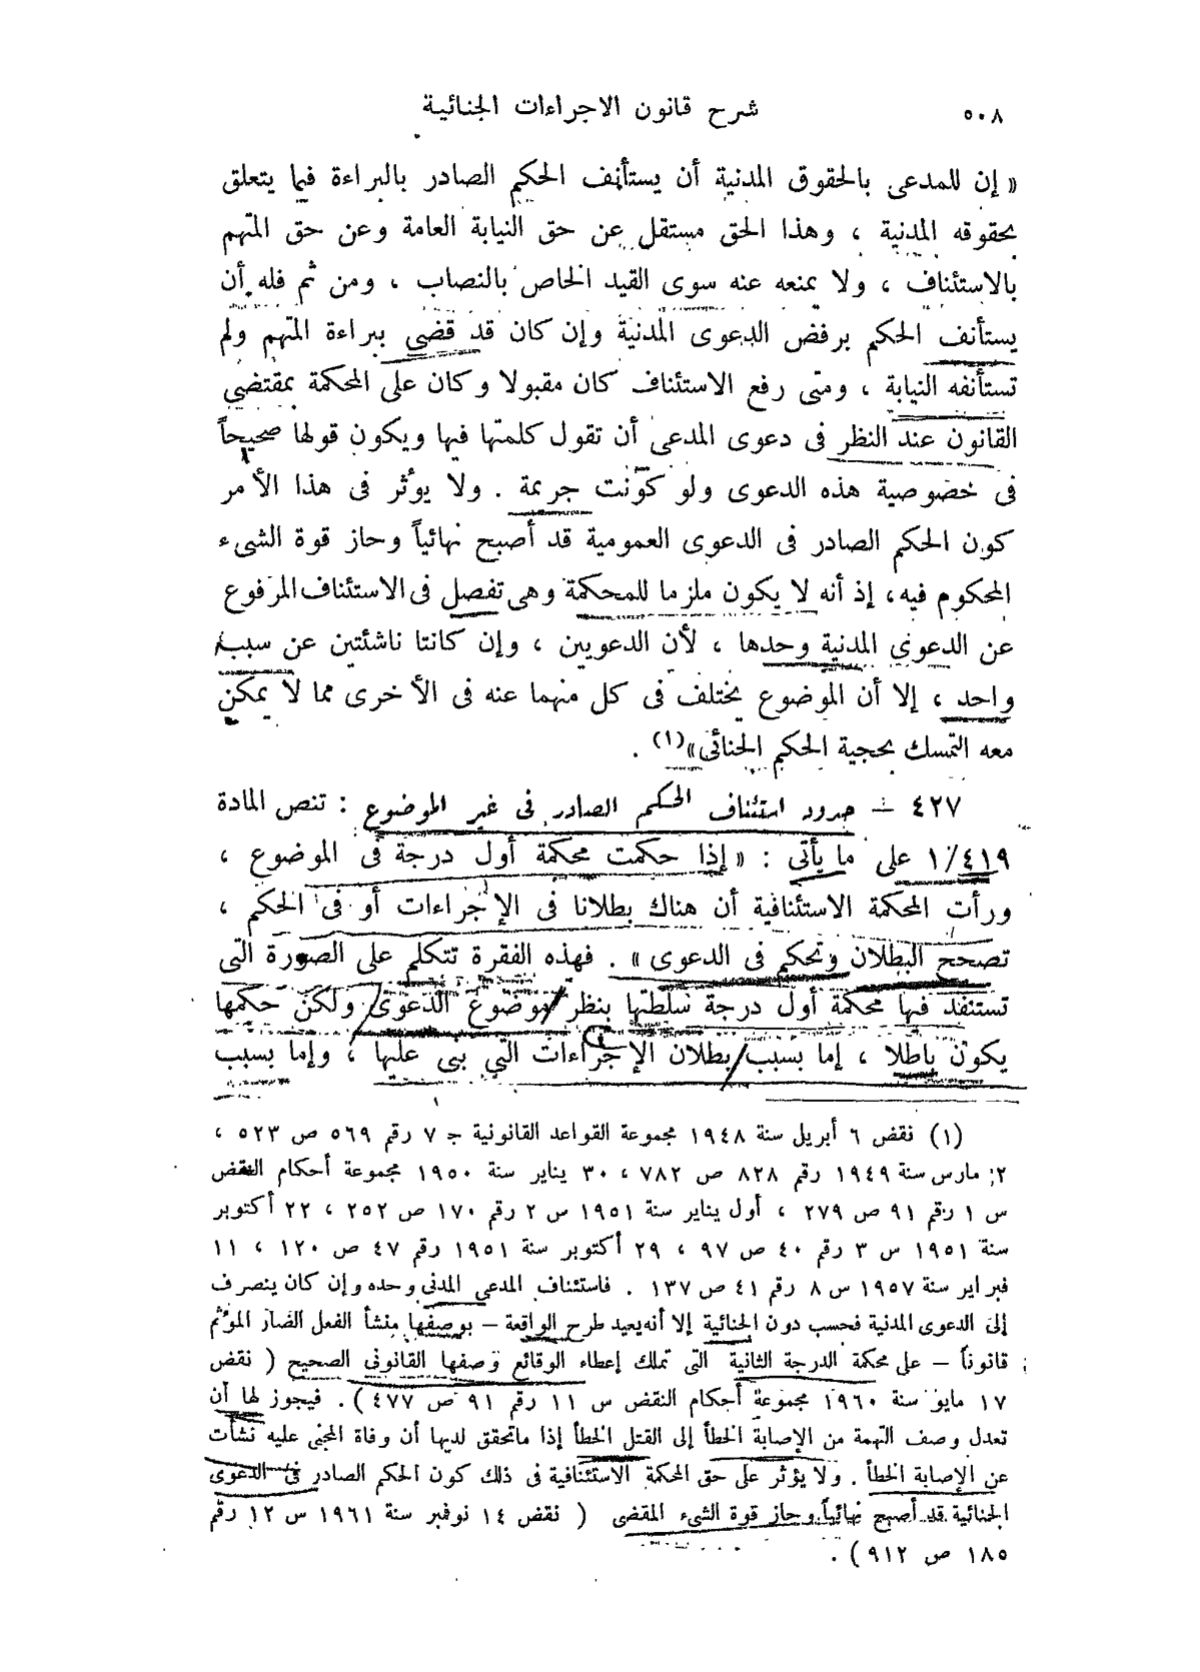 ٥٠٨
شرح قانون الاجراءات الجنائية
« إن للمدعى بالحقوق المدنية أن يستأنف الحكم الصادر بالبراءة فيما يتعلق
بحقوقه المدنية ، وهذا الحق مستقل عن حق النيابة العامة وعن حق المتهم
بالاستئناف ، ولا يمنعه عنه سوى القيد الخاص بالنصاب ، ومن ثم فله أن
يستأنف الحكم برفض الدعوى المدنية وإن كان قد قضى ببراءة المتهم ولم
تستأنفه النيابة ، ومتى رفع الاستئناف كان مقبولا وكان على المحكمة بمقتضى
القانون عند النظر فى دعوى المدعى أن تقول كلمتها فيها ويكون قولها صحيحاً
فى خصوصية هذه الدعوى ولو كوّنت جريمة . ولا يؤثر فى هذا الأمر
كون الحكم الصادر فى الدعوى العمومية قد أصبح نهائياً وحاز قوة الشىء
المحكوم فيه، إذ أنه لا يكون ملزما للمحكمة وهى تفصل فى الاستئناف المرفوع
عن الدعوى المدنية وحدها ، لأن الدعويين ، وإن كانتا ناشئتين عن سبب
واحد ، إلا أن الموضوع يختلف فى كل منهما عنه فى الأخرى مما لا يمكن
معه التمسك بحجية الحكم الجنائى»(١) .
٤٢٧ — حدود استئناف الحكم الصادر فى غير الموضوع : تنص المادة
١/٤١٩ على ما يأتى : « إذا حكمت محكمة أول درجة فى الموضوع ،
ورأت المحكمة الاستئنافية أن هناك بطلانا فى الإجراءات أو فى الحكم ،
تصحح البطلان وتحكم فى الدعوى » . فهذه الفقرة تتكلم على الصورة التى
تستنفد فيها محكمة أول درجة سلطتها بنظر موضوع الدعوى ولكن حكمها
يكون باطلا ، إما بسبب بطلان الإجراءات التي بنى عليها ، وإما بسبب
(١) نقض ٦ أبريل سنة ١٩٤٨ مجموعة القواعد القانونية جـ ٧ رقم ٥٦٩ ص ٥٢٣ ،
٢ مارس سنة ١٩٤٩ رقم ٨٢٨ ص ٧٨٢ ، ٣٠ يناير سنة ١٩٥٠ مجموعة أحكام النقض
س ١ رقم ٩١ ص ٢٧٩ ، أول يناير سنة ١٩٥١ س ٢ رقم ١٧٠ ص ٢٥٢ ، ٢٢ أكتوبر
سنة ١٩٥١ س ٣ رقم ٤٠ ص ٩٧ ، ٢٩ أكتوبر سنة ١٩٥١ رقم ٤٧ ص ١٢٠ ، ١١
فبراير سنة ١٩٥٧ س ٨ رقم ٤١ ص ١٣٧ . فاستئناف المدعى المدنى وحده وإن كان ينصرف
إلى الدعوى المدنية فحسب دون الجنائية إلا أنه يعيد طرح الواقعة — بوصفها منشأ الفعل الضار المؤثم
قانوناً — على محكمة الدرجة الثانية التى تملك إعطاء الوقائع وصفها القانونى الصحيح ( نقض
١٧ مايو سنة ١٩٦٠ مجموعة أحكام النقض س ١١ رقم ٩١ ص ٤٧٧ ) . فيجوز لها أن
تعدل وصف التهمة من الإصابة الخطأ إلى القتل الخطأ إذا ماتحقق لديها أن وفاة المجنى عليه نشأت
عن الإصابة الخطأ . ولا يؤثر على حق المحكمة الاستئنافية فى ذلك كون الحكم الصادر فى الدعوى
الجنائية قد أصبح نهائياً وحاز قوة الشىء المقضى ( نقض ١٤ نوفمبر سنة ١٩٦١ س ١٢ رقم
١٨٥ ص ٩١٢ ) .